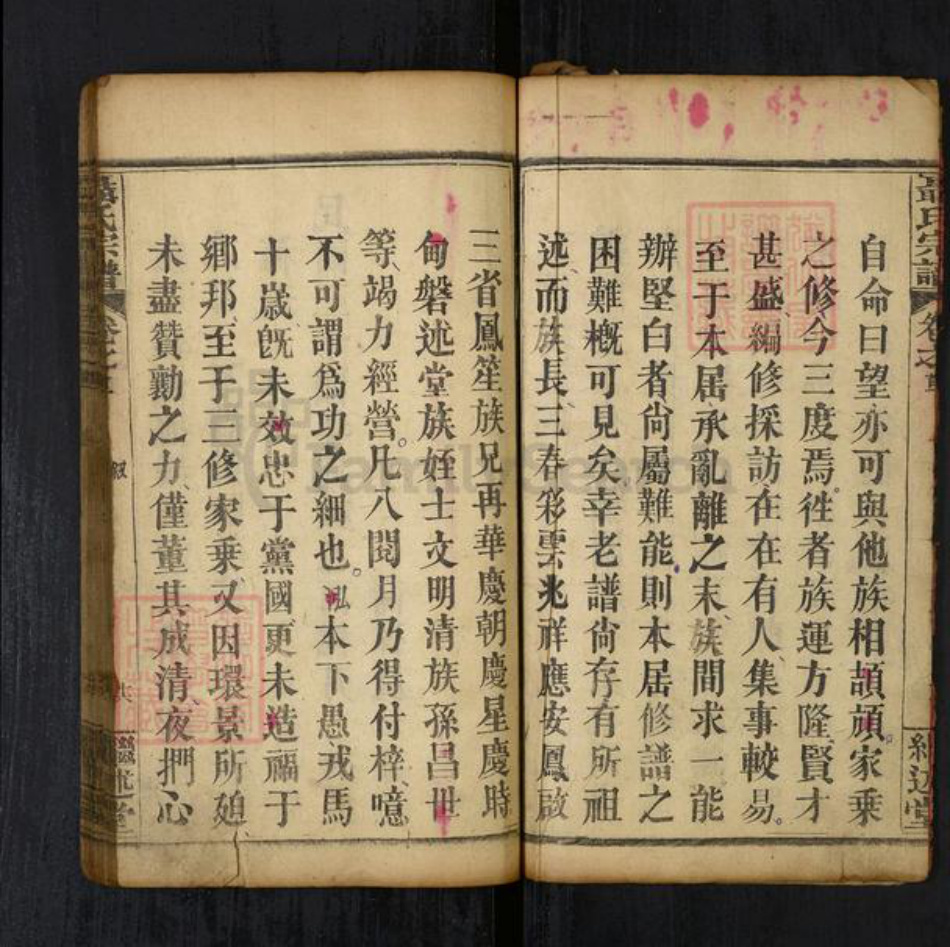 自命曰望亦可與他族相頡頏家乘
之修今三度焉徃者族運方隆賢才
甚盛編修採訪在在有人集事較易。
至于本届承亂離之末族間求一能
辦堅白者尙屬難能則本届修譜之
困難槪可見矣幸老譜尙存有所祖
述而族長三春彩雲兆祥應安鳳啟
三省鳳笙族兄再華慶朝慶星慶時
甸磐述堂族姪士文明清族孫昌世
等竭力經營。凡八閱月乃得付梓噫
不可謂爲功之細也。泓本下愚戎馬
十歲旣未效忠于黨國更未造福于
鄕邦至于三修家乘又因環景所廹
未盡贊勷之力僅董其成清夜捫心
聶氏宗譜
卷之
敍
繼述堂
FamilySearch